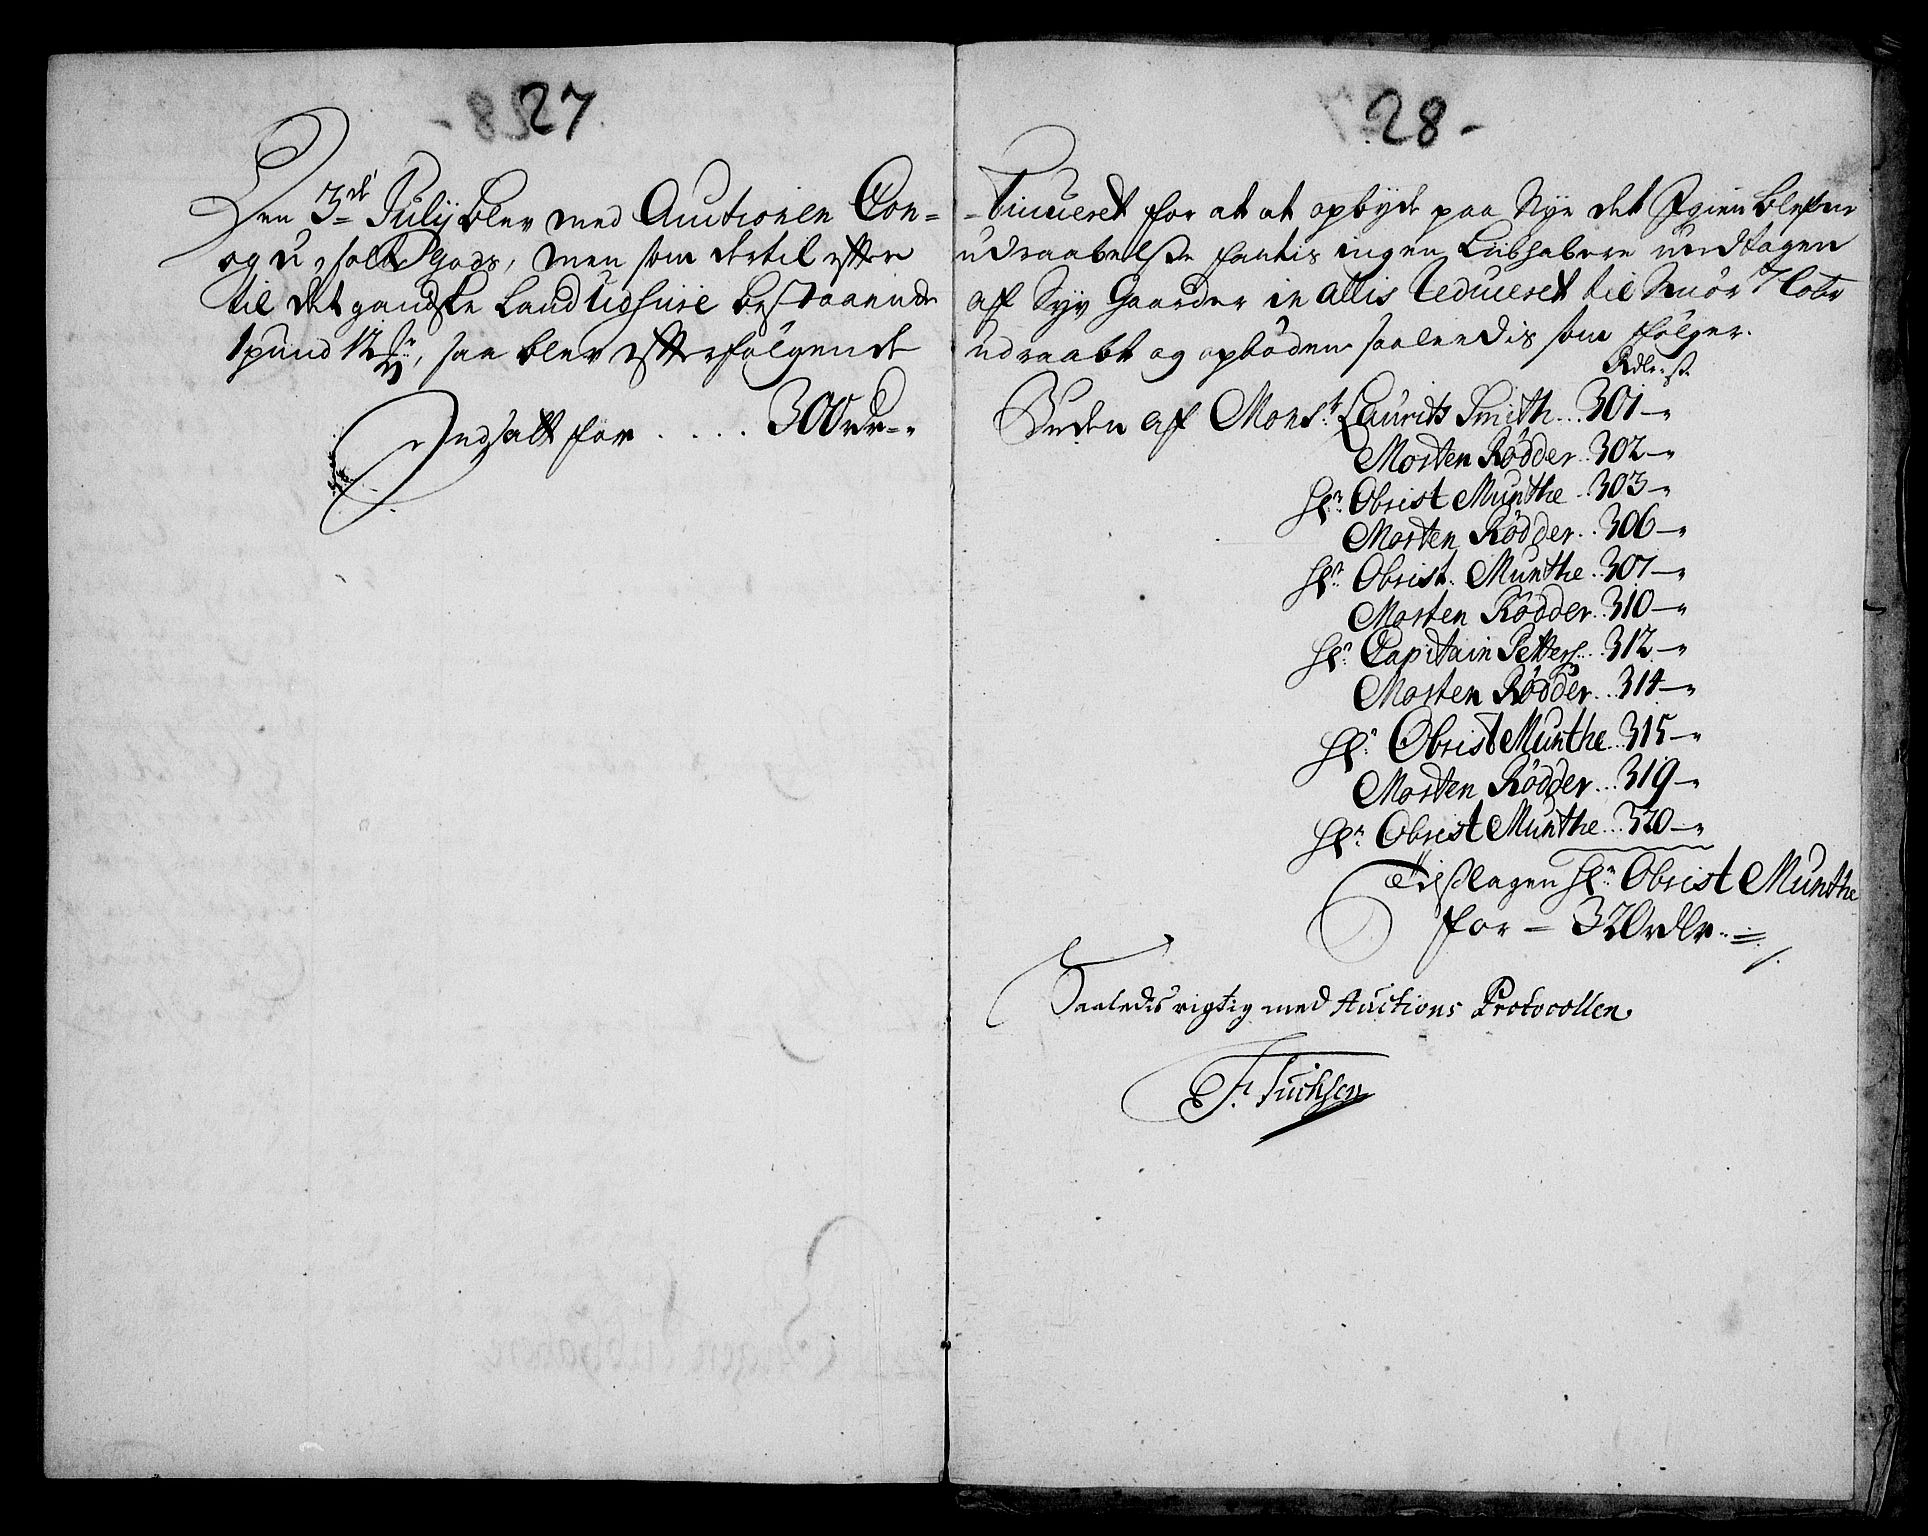 27
Den 3de Julij blev med Auctionen Con=
og u-solte Gods, men som dertil efter
til det gandske Land udhuse bestaaende
1 pund 12 , saa blev efterfølgende
Indsatt for .... 300 rdr="
28-
=tinueret for at at opbyde paa Nye det Igien blefne
udraabelse fantis ingen Liibhabere undtagen
af Syv Gaarder in allis reduceret til Smør
udraabt og opbøden saaledis som følger.
Rdlr. s.
Buden af Monsr. Laurits Smith...301-"
Morten Rødder..302-"
Hr. Obrist Munthe..303-"
Morten Rødder..306-"
Hr. Obrist. Munthe..307-"
Morten Rødder..310-"
Hr. Capitain Petters...312-"
Morten Rødder...314-"
Hr. Obrist Munthe...315-"
Morten Rødder...319-"
Hr. Obrist Munthe...320-"
Tilslagen Hr. Obrist Munthe
for = 320 rdlr.=
Saaledis rigtig med Auctions Protocollen.
F. Tuchsen